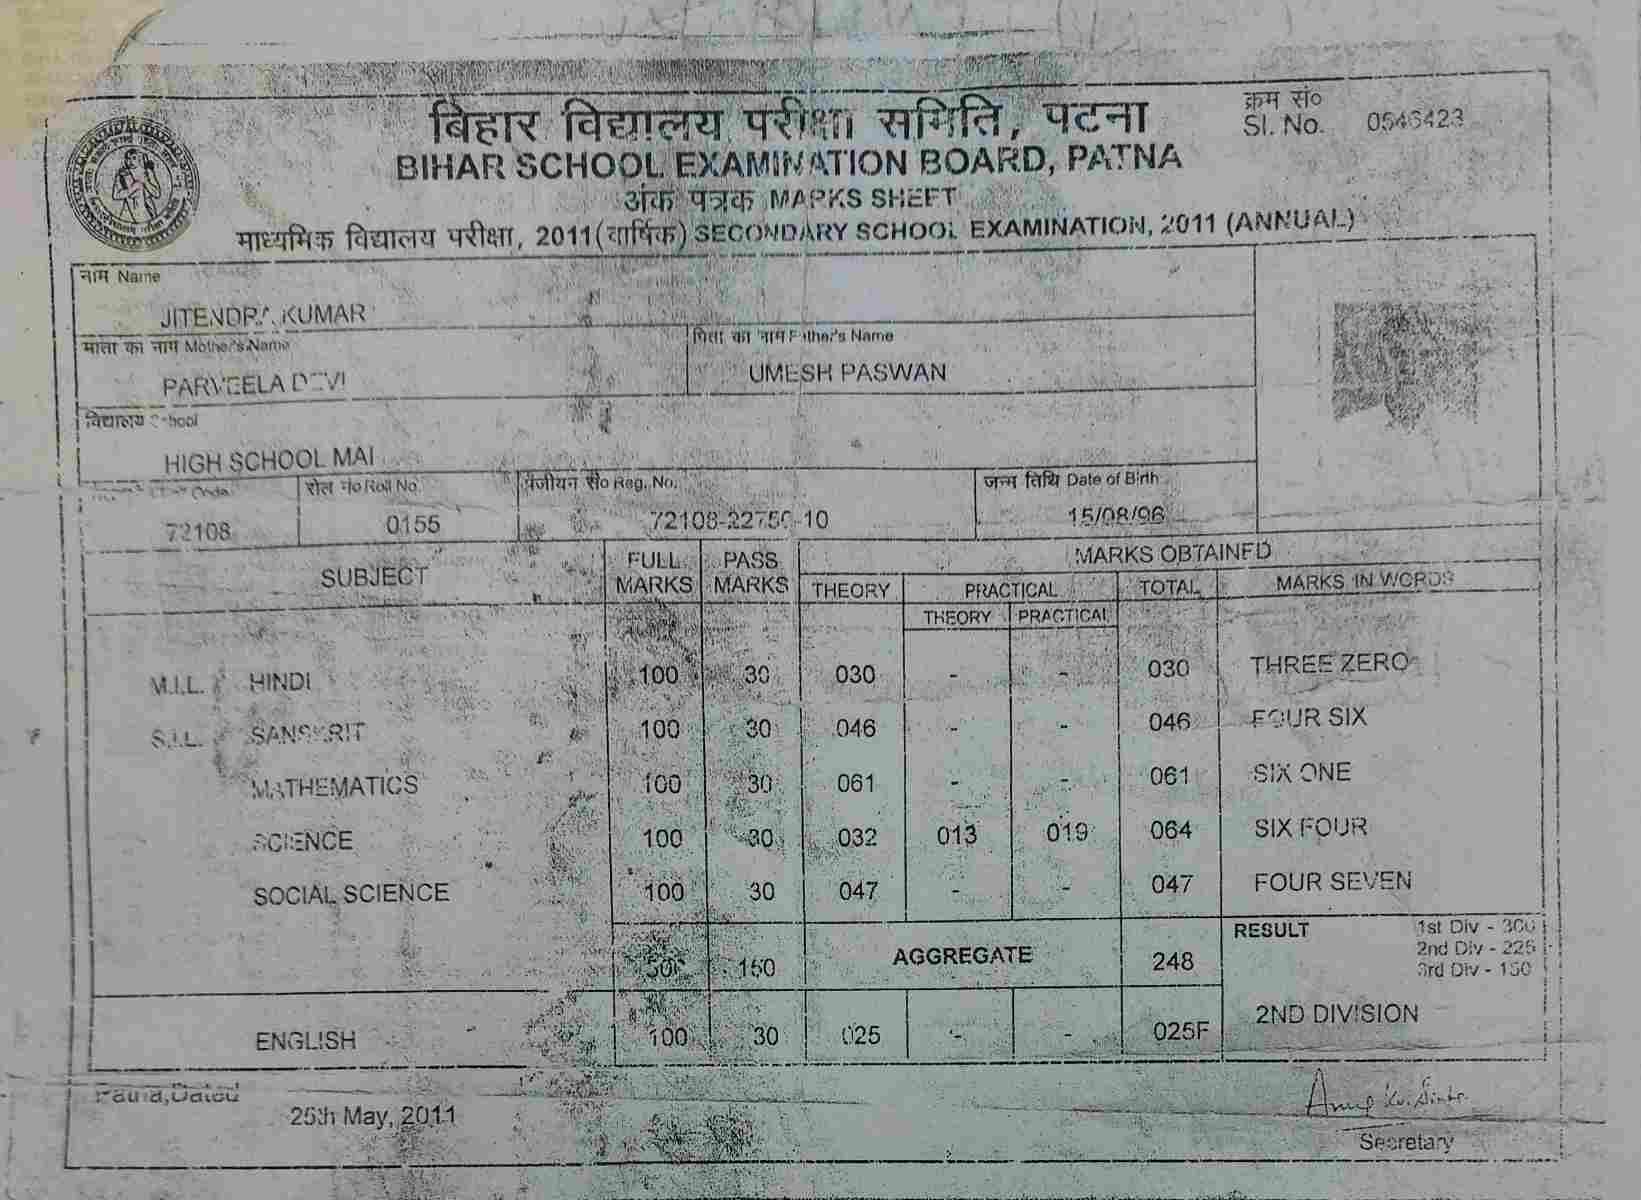 बिहार विद्यालय परीक्षा समिति, पटना
क्रम सं०
Sl. No. 0546423
BIHAR SCHOOL EXAMINATION BOARD, PATNA
अंक पत्रक MARKS SHEET
माध्यमिक विद्यालय परीक्षा, 2011 (वार्षिक) SECONDARY SCHOOL EXAMINATION, 2011 (ANNUAL)
नाम Name
JITENDRA KUMAR
माता का नाम Mother's Name पिता का नाम Father's Name
PARVEELA DEVI UMESH PASWAN
विद्यालय School
HIGH SCHOOL MAI
Code रोल नं० Roll No. पंजीयन सं० Reg. No. जन्म तिथि Date of Birth
72108 0155 72108-22750-10 15/08/96
SUBJECT FULL MARKS PASS MARKS MARKS OBTAINED
THEORY PRACTICAL TOTAL MARKS IN WORDS
THEORY PRACTICAL
M.I.L. HINDI 100 30 030 - - 030 THREE ZERO
S.I.L. SANSKRIT 100 30 046 - - 046 FOUR SIX
MATHEMATICS 100 30 061 - - 061 SIX ONE
SCIENCE 100 30 032 013 019 064 SIX FOUR
SOCIAL SCIENCE 100 30 047 - - 047 FOUR SEVEN
500 150 AGGREGATE 248 RESULT 1st Div - 300
2nd Div - 225
3rd Div - 150
2ND DIVISION
ENGLISH 100 30 025 - - 025F
Patna, Dated
25th May, 2011
Secretary